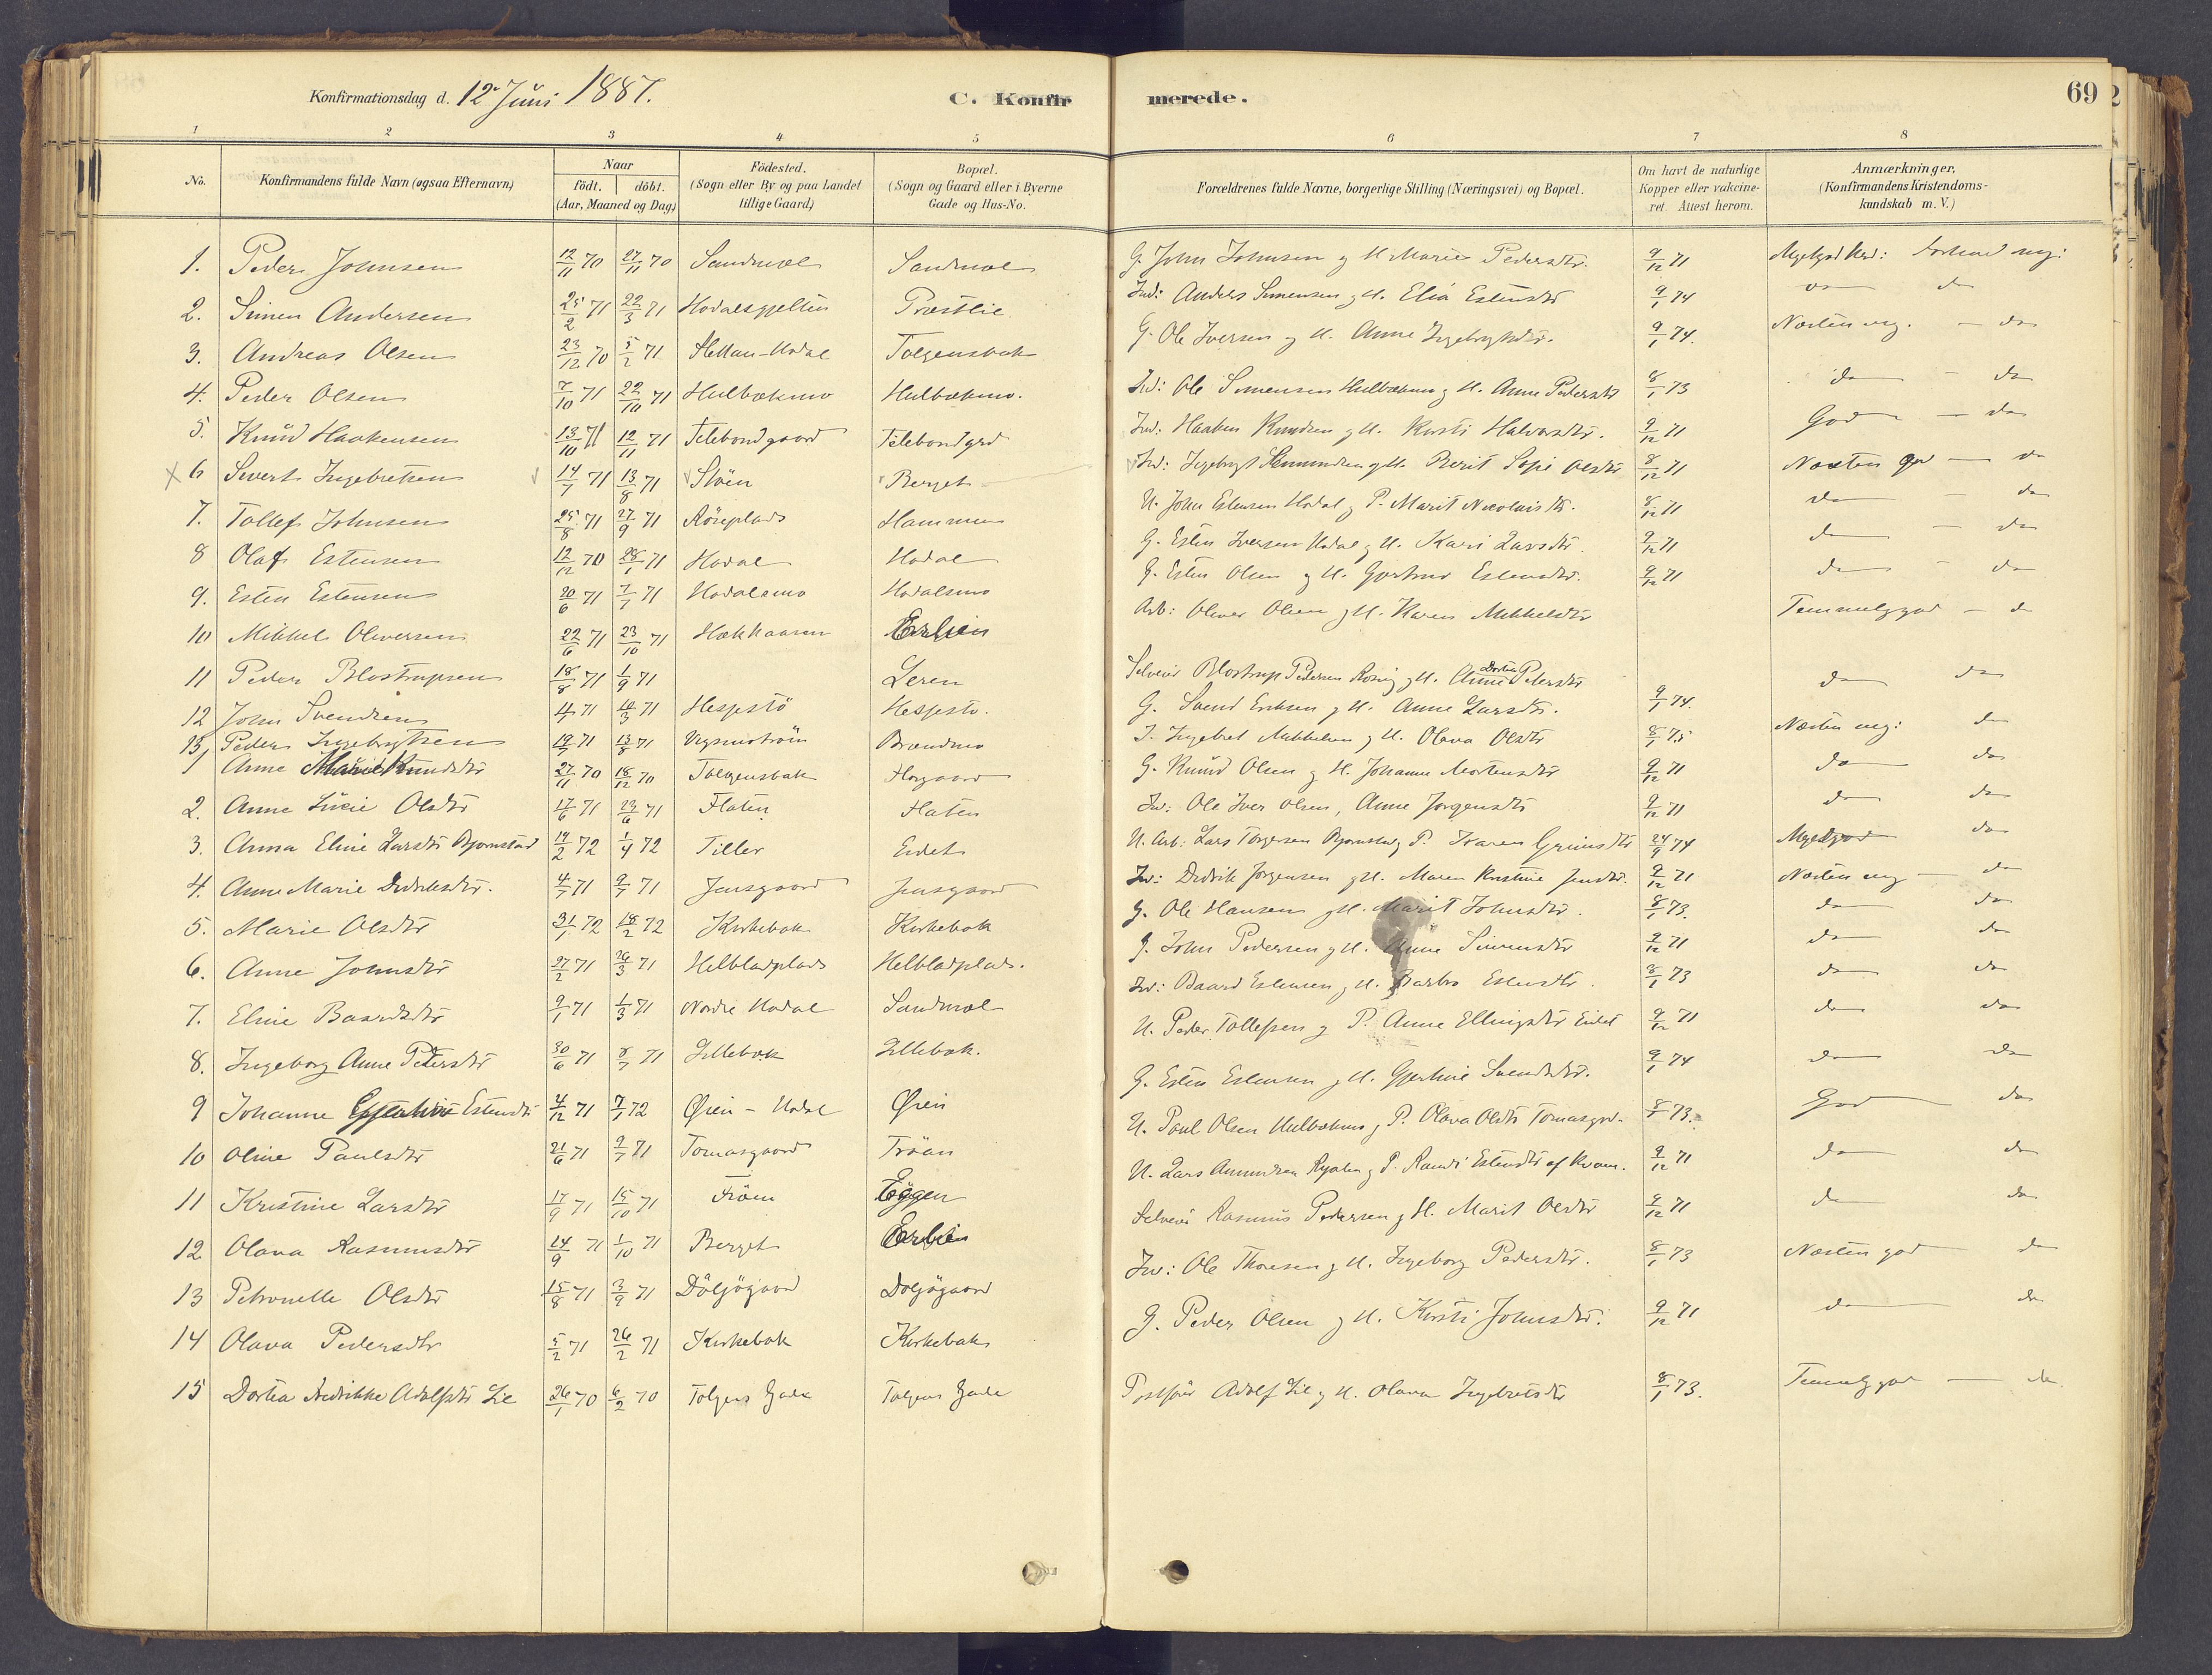 Konfirmationsdag d. 12te Juni 1887.
C. Konfirmerede.
69
1 2 3 4 5 6 7 8
No.
Konfirmandens fulde Navn (ogsaa Efternavn)
Naar
födt. döbt.
(Aar, Maaned og Dag)
Födested.
(Sogn eller By og paa Landet
tillige Gaard)
Bopæl.
(Sogn og Gaard eller i Byerne
Gade og Hus-No.
Forældrenes fulde Navne, borgerlige Stilling (Næringsvei) og Bopæl.
Om havt de naturlige
Kopper eller vakcine-
ret. Attest herom.
Anmærkninger.
(Konfirmandens Kristendoms-
kundskab m. V.)
1. Peder Johnsen 12/11 70 27/11 70 Sandmoel Sandmoel G. John Johnsen og H. Marie Pedersdtr. 9/12 71
2. Simen Andersen 25/2 71 22/3 71 Hodalsgjelten Præstlie Ind: Anders Simensen og H. Elia Estensdtr 9/1 74 do do
3. Andreas Olsen 23/12 70 5/2 71 Hodal Tolgensbak G. Ole Iversen og H. Anne Ingebrigtsdtr. 9/1 74. Næsten mg. - do
4. Peder Olsen 7/10 71 22/10 71 Hulbækmo Hulbækmo. Ind: Ole Simensen Hulbækmo og H. Anne Pedersdtr 8/1 73 do - do
5. Knud Haakensen 13/10 71 12/11 71 Telebondgaard Telebondgrd Ind: Haaken Knudsen og H. Kirsti Halvorsdtr. 9/12 71 God - do
x 6 Sivert Ingebretsen 14/7 71 13/8 71 Stöen Berget Ind: Ingebrigt Simensen og H. Berit Sofie Olsdtr 8/12 71 Næsten god - do
7. Tollef Johnsen 25/8 71 27/9 71 Röseplads Hammen U. John Estensen Hodal og P. Marit Nicolaisdtr. 8/12 71 do - do
8 Olaf Estensen 12/12 70 28/1 71 Hodal Hodal G. Esten Iversen Hodal og H. Kari Larsdtr. 9/12 71 do - do
9. Esten Estensen 20/6 71 7/7 71 Hodalsmo Hodalsmo G. Esten Olsen og H. Gjertrud Estensdtr. 9/12 71 do - do
10 Mikkel Oliversen 22/6 71 23/10 71 Erlien Arb: Oliver Olsen og H. Karen Mikkelsdtr Temmelig god - do
11 Peder Blostrupsen 18/8 71 1/9 71 Leren Selveier Blostrup Pedersen og H. Anne Dortea Petersdtr do do
12 John Svendsen 4/1 71 12/3 71 Hespestö Hespestö. G. Svend Eriksen og H. Anne Larsdtr. 9/1 74.
13, Peder Ingebrigtsen 19/7 71 13/8 71 Brændmo I. Ingebret Mikkelsen og H. Olava Olsdtr 8/1 75 Næsten mg: do
1 Anne Marie Knudsdtr 27/11 70 18/12 70 Tolgensbak Horgaard G. Knud Olsen og H. Johanne Mortensdtr 9/12 71 do do
2. Anne Lucie Olsdtr 17/6 71 23/6 71 Flaten Flaten Ind: Ole Iver Olsen, Anne Jorgensdtr 9/12 71 do do
3. Anna Eline Larsdtr Bjørnstad 19/2 72 1/4 72 Tiller Eidet U. Arb: Lars Torgersen Bjørnstad og P. Karen Grimsdtr 24/9 74 Meget god do
4. Anne Marie Didriksdtr. 4/7 71 9/7 71 Jensgaard Jensgaard Ind: Didrik Jorgensen og H. Maren Kristine Jensdtr. 9/12 71 Næsten mg - do
5. Marie Olsdtr 31/1 72 18/2 72 Kirkebak Kirkebak G. Ole Hansen og H. Marit Johnsdtr. 8/1 73. do do
6. Anne Johnsdtr 27/2 71 26/3 71 Helbladplads Helbladplads. G. John Pedersen og H. Anne Simensdtr 9/12 71 do do
7. Eline Baardsdtr 9/1 71 1/3 71 Nordre Hodal Sandmoel Ind: Baard Estensen og H. Barbro Estensdtr. 8/1 73 do do
8. Ingeborg Anne Petersdtr 30/6 71 8/7 71 Lillebak Lillebak. U. Peder Tollefsen og P. Anne Ellingsdtr Eidet 9/12 71 do do
9 Johanne Gjertine Estensdtr 4/12 71 7/1 72 Øien - Hodal Øien G. Esten Estensen og H. Gjertine Svendsdtr. 9/1 74 do do
10 Oline Paulsdtr 21/6 71 9/7 71 Tomasgaard Tröan U. Paul Olsen Hulbækmo og P. Olava Olsdtr Tomasgrd. 8/1 73. God do
11 Kristine Larsdtr 17/9 71 15/10 71 Tröen Eggen U. Lars Amundsen og P. Randi Estensdtr af Kvam. 9/12 71 do do
12 Olava Rasmusdtr 14/9 71 1/10 71 Berget Erlien Selveier Rasmus Pedersen og H. Marit Olsdtr 9/12 71 do do
13 Petronelle Olsdtr 15/8 71 3/9 71 Döljögaard Doljögaard Ind: Ole Thoresen og H. Ingeborg Pedersdtr. 8/1 73 Næsten god do
14 Olava Pedersdtr 5/2 71 26/2 71 Kirkebak Kirkebak G. Peder Olsen og H. Kirsti Johnsdtr. 9/12 71 do do
15 Dortea Fredrikke Adolfsdtr Lie 26/1 70 6/2 70 Tolgens Gade Tolgens Gade Adolf Lie og H. Olava Ingebretsdtr 8/1 73. Temmelig god - do